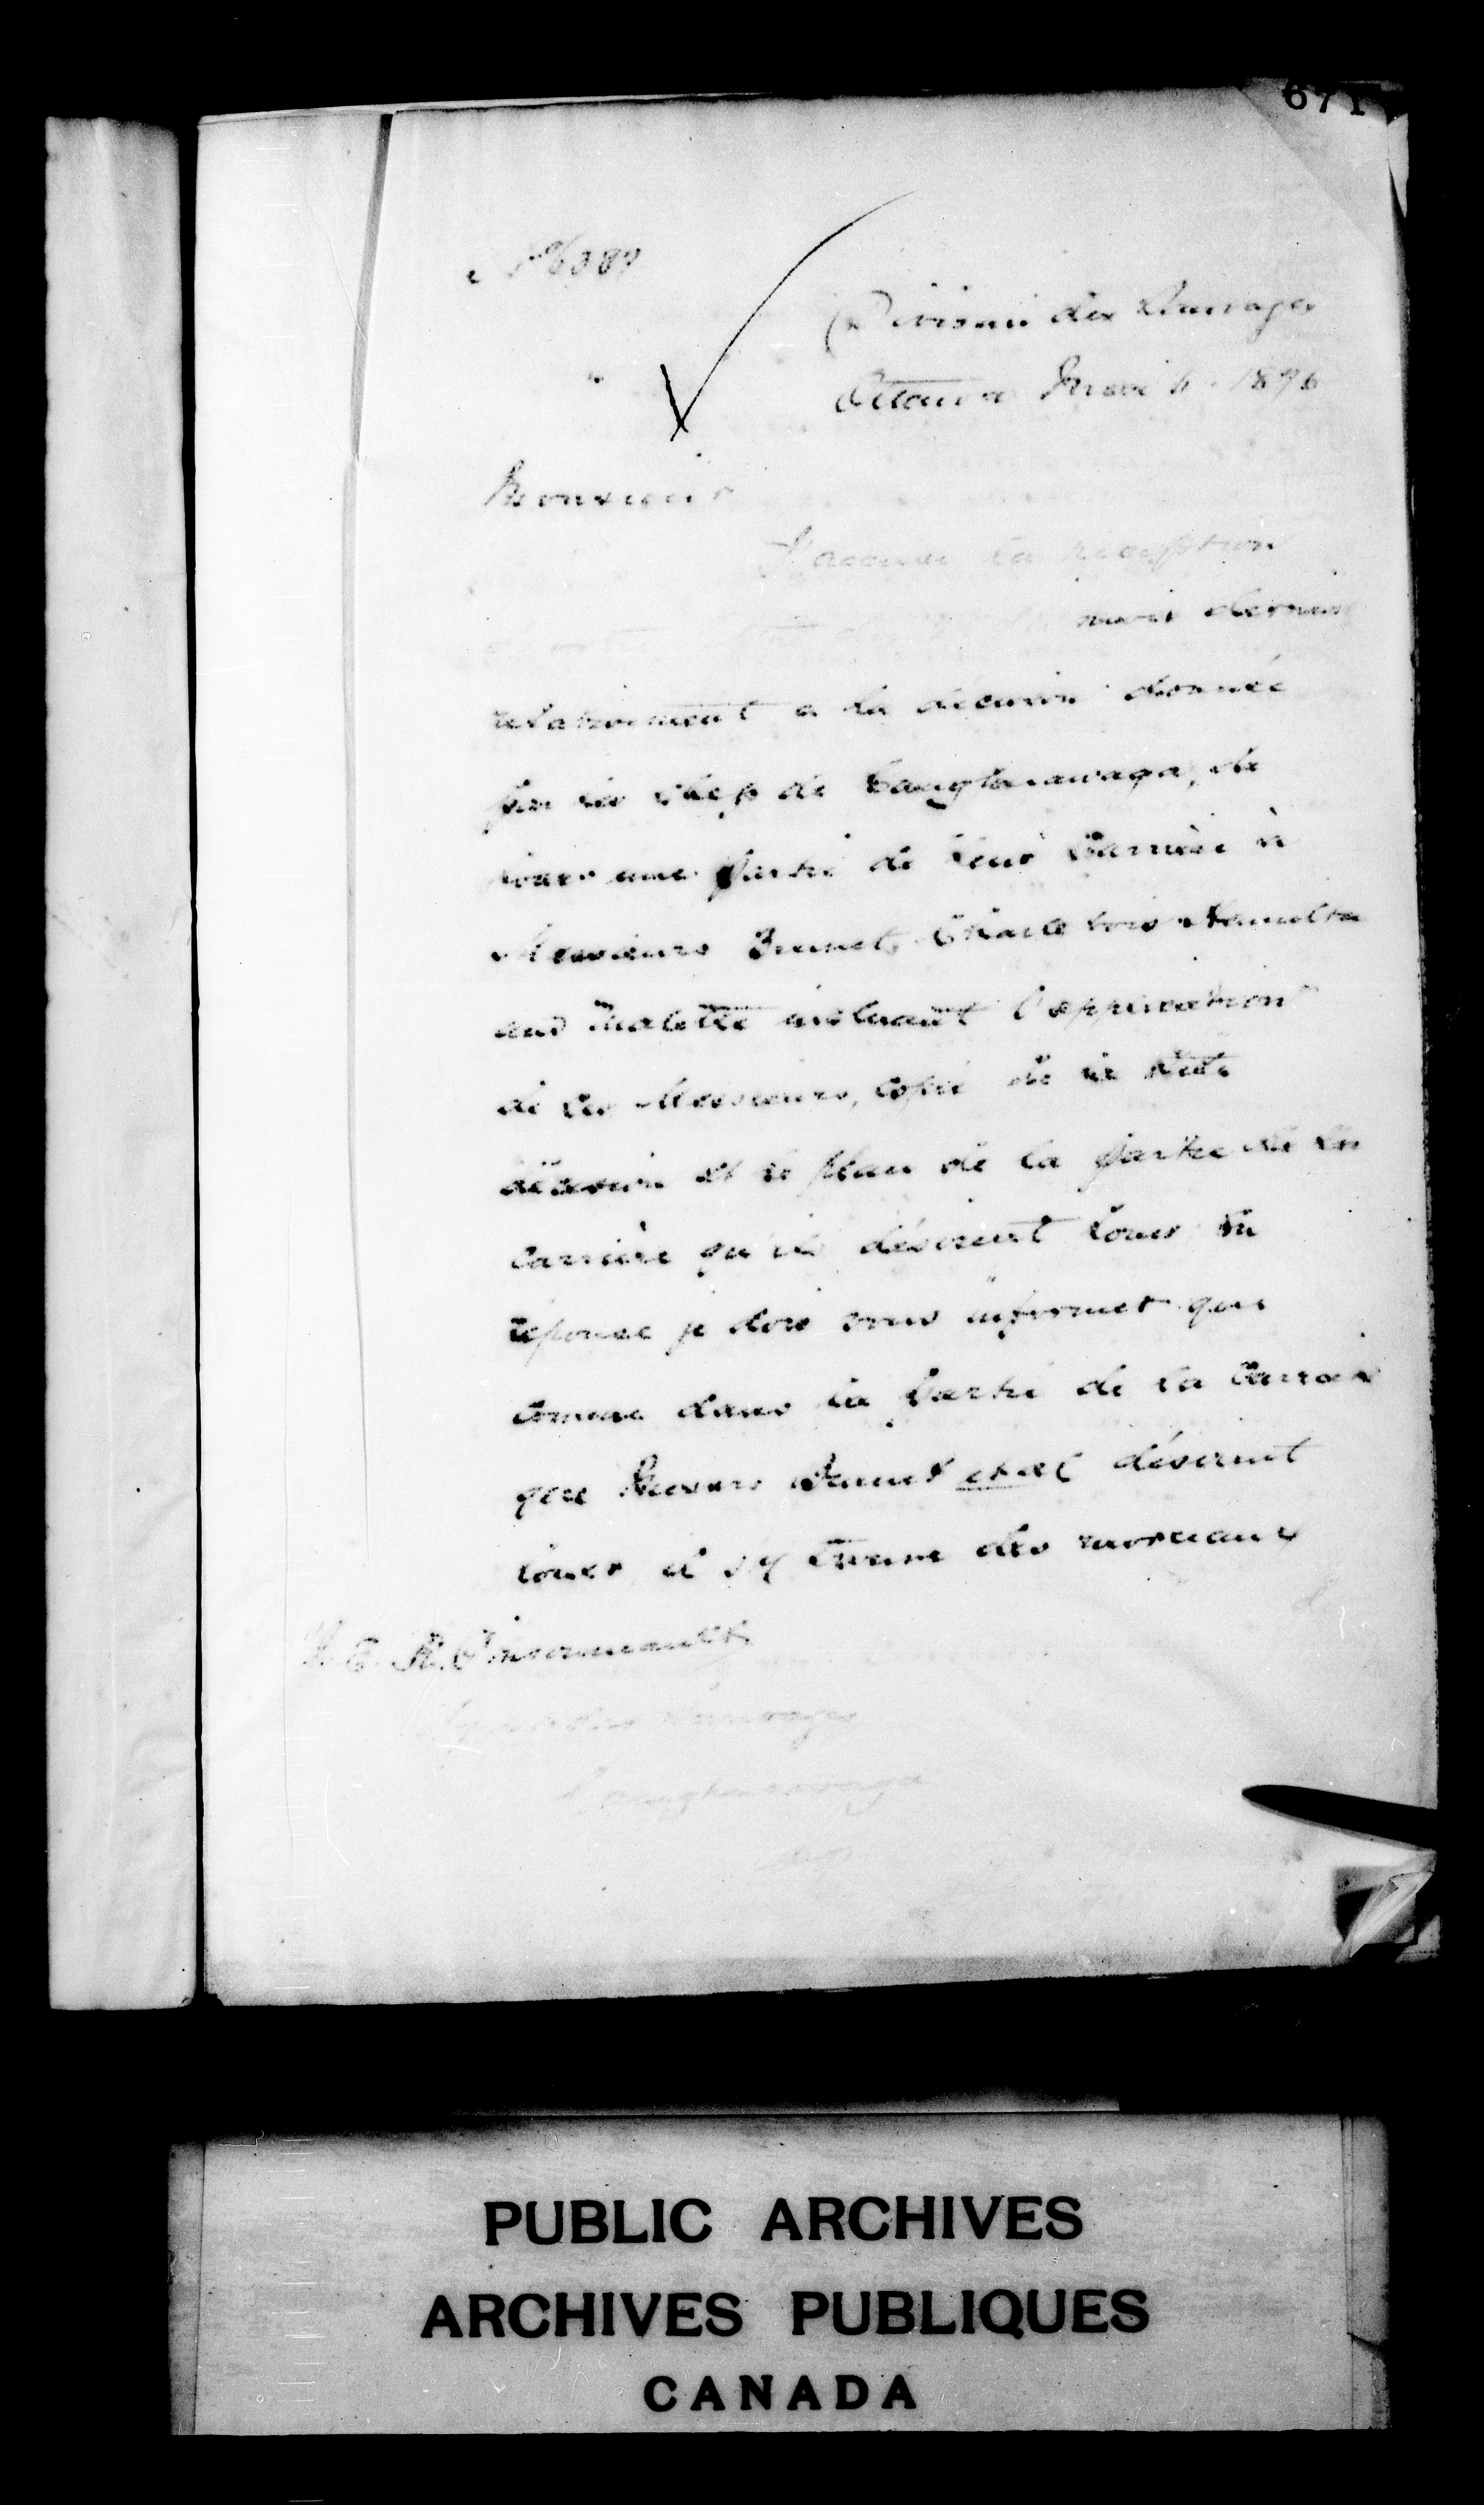 671
Division des Sauvages
Ottawa 1896
Monsieur
J'accuse la reception
mois dernier
relativement a la décision donnée
par les chefs de Caughnawaga, de
louer une partie de leur Carrière à
Messieurs Brunet, Charlebois Hamilton
and incluant l'application
de ces Messieurs, Copie de la dite
décision et le plan de la partie de la
Carrière qu'ils désirent louer En
réponse je dois vous informer que
Comme dans la partie de la Carrière
que Messrs Brunet et al désirent
louer il s'y trouve des morceaux
des Sauvages
Caughnawaga
PUBLIC ARCHIVES
ARCHIVES PUBLIQUES
CANADA